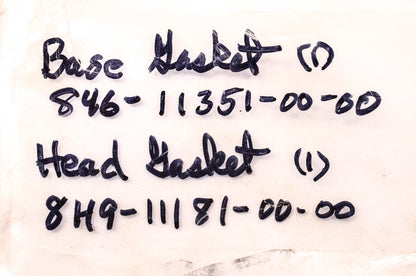 Base Gasket (1)
846-11351-00-00
Head Gasket (1)
8H9-11181-00-00